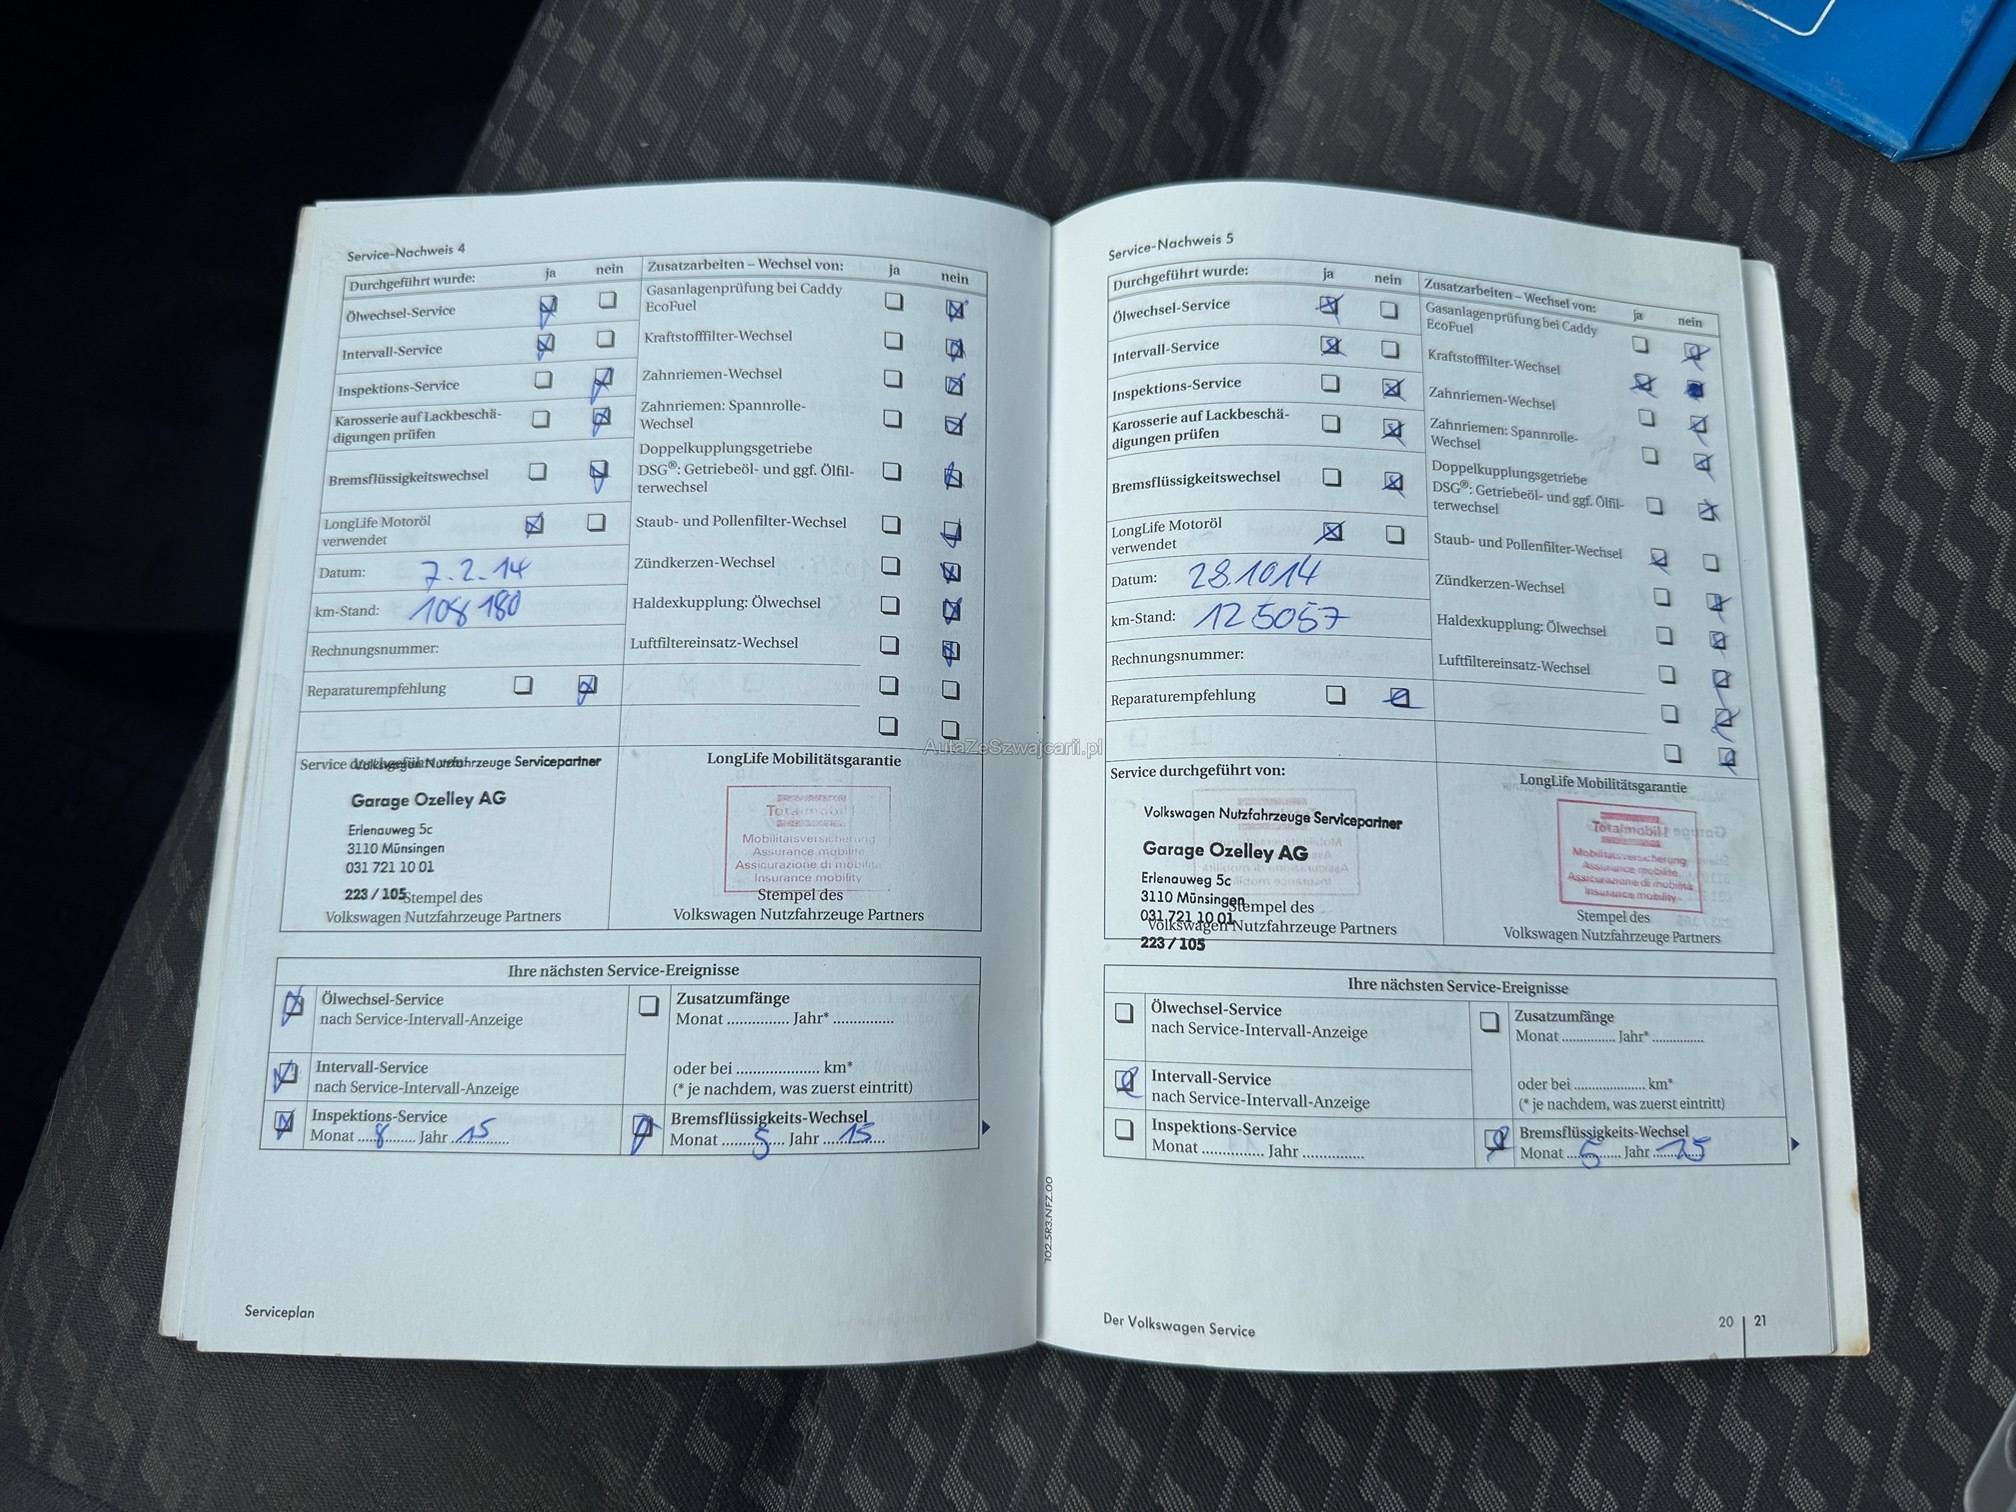 Service-Nachweis 4
Durchgeführt wurde: ja nein
Ölwechsel-Service
Intervall-Service
Inspektions-Service
Karosserie auf Lackbeschä-
digungen prüfen
Bremsflüssigkeitswechsel
LongLife Motoröl
verwendet
Datum: 7.2.14
km-Stand: 108 180
Rechnungsnummer:
Reparaturempfehlung
Zusatzarbeiten – Wechsel von: ja nein
Gasanlagenprüfung bei Caddy
EcoFuel
Kraftstofffilter-Wechsel
Zahnriemen-Wechsel
Zahnriemen: Spannrolle-
Wechsel
Doppelkupplungsgetriebe
DSG®: Getriebeöl- und ggf. Ölfil-
terwechsel
Staub- und Pollenfilter-Wechsel
Zündkerzen-Wechsel
Haldexkupplung: Ölwechsel
Luftfiltereinsatz-Wechsel
Service
Volkswagen Nutzfahrzeuge Servicepartner
Garage Ozelley AG
Erlenauweg 5c
3110 Münsingen
031 721 10 01
223 / 105
Stempel des
Volkswagen Nutzfahrzeuge Partners
LongLife Mobilitätsgarantie
Totalmobil!
Mobilitätsversicherung
Assurance mobilité
Assicurazione di mobilità
Insurance mobility
Stempel des
Volkswagen Nutzfahrzeuge Partners
Ihre nächsten Service-Ereignisse
Ölwechsel-Service
nach Service-Intervall-Anzeige
Intervall-Service
nach Service-Intervall-Anzeige
Inspektions-Service
Monat ....8........ Jahr ..15.........
Zusatzumfänge
Monat ............... Jahr* ..............
oder bei .................... km*
(* je nachdem, was zuerst eintritt)
Bremsflüssigkeits-Wechsel
Monat .........5.... Jahr ....15.......
Serviceplan
102.5R3.NFZ.00
Service-Nachweis 5
Durchgeführt wurde: ja nein
Ölwechsel-Service
Intervall-Service
Inspektions-Service
Karosserie auf Lackbeschä-
digungen prüfen
Bremsflüssigkeitswechsel
LongLife Motoröl
verwendet
Datum: 28.10 14
km-Stand: 125057
Rechnungsnummer:
Reparaturempfehlung
Zusatzarbeiten – Wechsel von: ja nein
Gasanlagenprüfung bei Caddy
EcoFuel
Kraftstofffilter-Wechsel
Zahnriemen-Wechsel
Zahnriemen: Spannrolle-
Wechsel
Doppelkupplungsgetriebe
DSG®: Getriebeöl- und ggf. Ölfil-
terwechsel
Staub- und Pollenfilter-Wechsel
Zündkerzen-Wechsel
Haldexkupplung: Ölwechsel
Luftfiltereinsatz-Wechsel
Service durchgeführt von:
Volkswagen Nutzfahrzeuge Servicepartner
Garage Ozelley AG
Erlenauweg 5c
3110 Münsingen
031 721 10 01
223 / 105
Stempel des
Volkswagen Nutzfahrzeuge Partners
LongLife Mobilitätsgarantie
Totalmobil!
Mobilitätsversicherung
Assurance mobilité
Assicurazione di mobilità
Insurance mobility
Stempel des
Volkswagen Nutzfahrzeuge Partners
Ihre nächsten Service-Ereignisse
Ölwechsel-Service
nach Service-Intervall-Anzeige
Intervall-Service
nach Service-Intervall-Anzeige
Inspektions-Service
Monat ............... Jahr ...............
Zusatzumfänge
Monat ............... Jahr* ..............
oder bei .................... km*
(* je nachdem, was zuerst eintritt)
Bremsflüssigkeits-Wechsel
Monat ....5........ Jahr ....15.......
Der Volkswagen Service
20 | 21
AutaZeSzwajcarii.pl